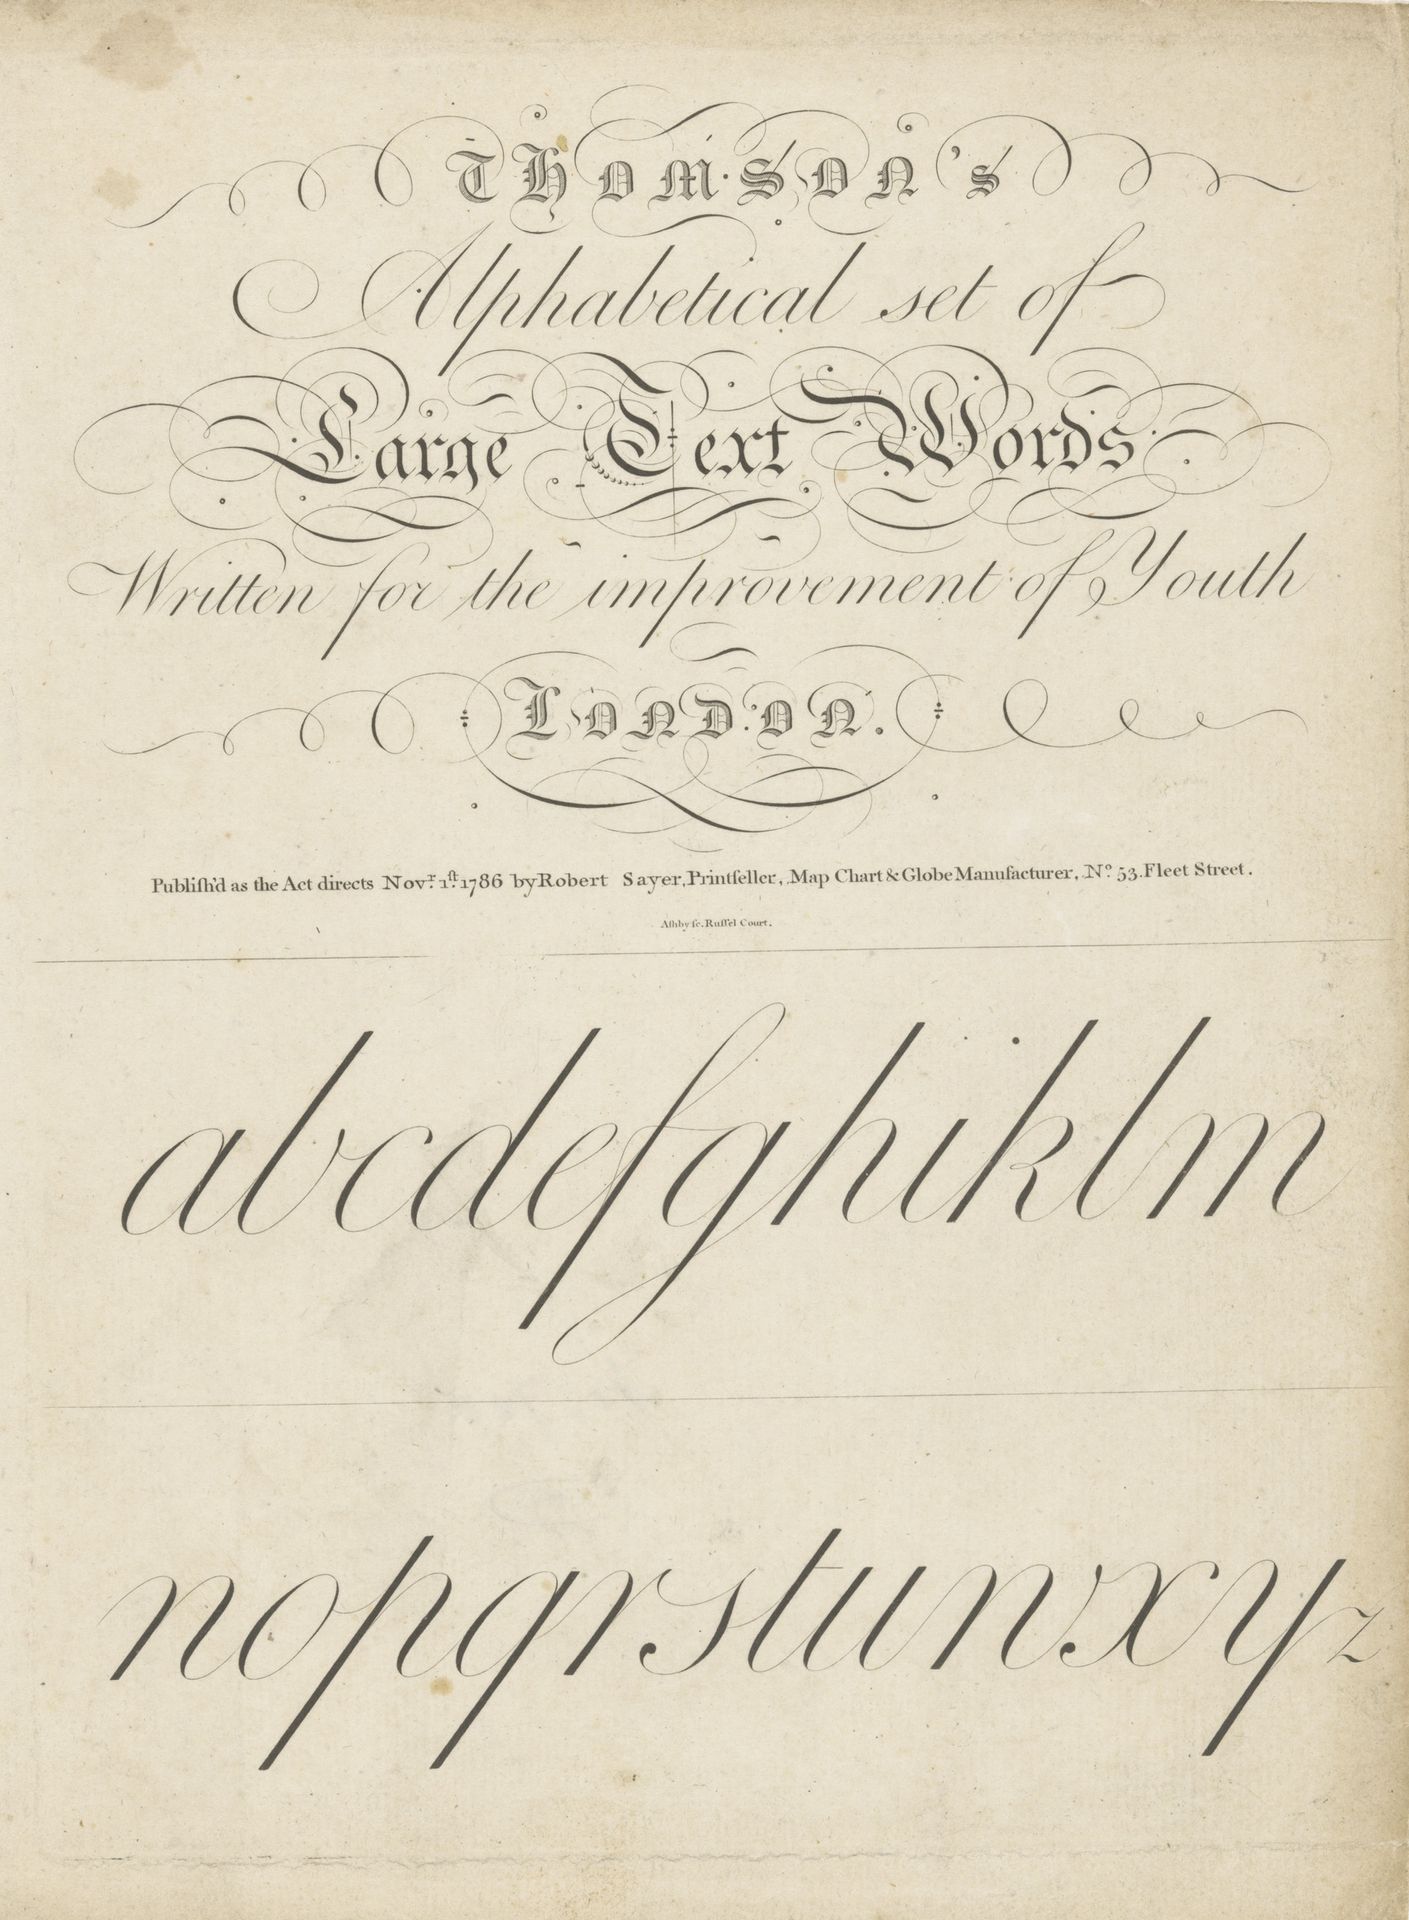 THOMSON's
Alphabetical set of
Large Text Words
Written for the improvement of Youth
LONDON.
Publiſh'd as the Act directs Nov.r 1.ſt 1786 by Robert Sayer, Printſeller, Map Chart & Globe Manufacturer, N.o 53. Fleet Street.
Aſhby ſc. Ruſſel Court.
abcdefghiklm
nopqrstuwxyz